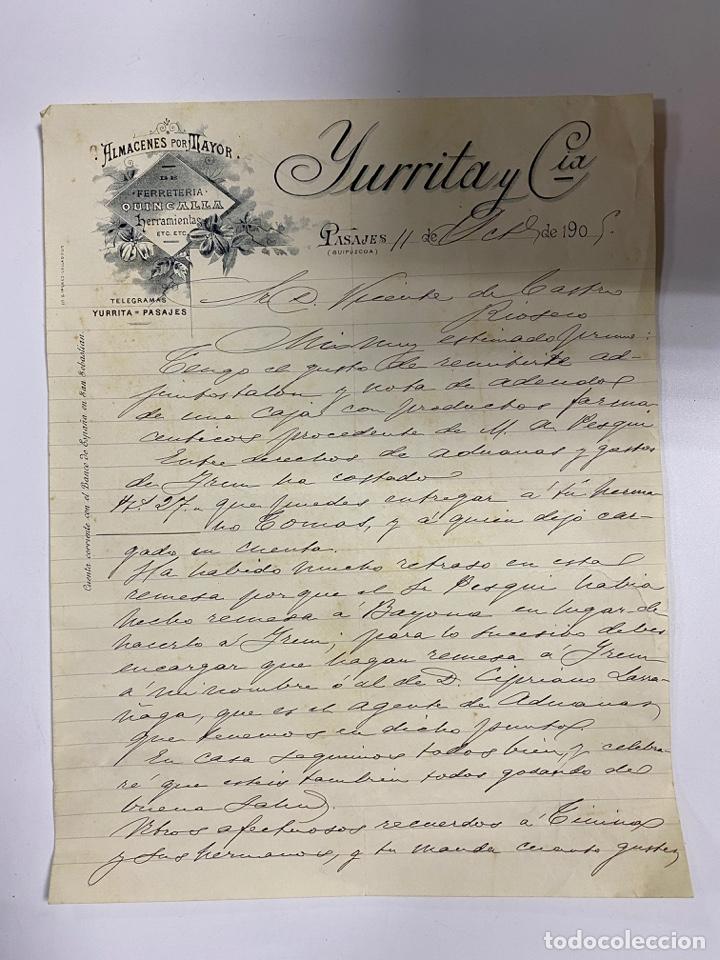 ALMACENES POR MAYOR
DE
FERRETERIA
QUINCALLA
Herramientas
ETC. ETC.
TELEGRAMAS
YURRITA = PASAJES
Yurrita y Cia
PASAJES 11 de Octe de 1905.
(GUIPUZCOA)
Cuenta corriente con el Banco de España en San Sebastián.
Sr. D. Vicente de Castro
Rioseco
Mi muy estimado primo:
Tengo el gusto de remitirte ad-
junto talon y nota de adeudos
de una caja con productos farma
ceuticos procedente de M. de Pesqui
Entre derechos de aduanas y gastos
de Irun ha costado
27. " que puedes entregar á tu herma
no Tomas, y á quien dejo car-
gado en cuenta.
Ha habido mucho retraso en esta
remesa porque el Sr Pesqui habia
hecho remesa á Bayona en lugar de
hacerlo á Irun; para lo sucesivo debes
encargar que hagan remesa á Irun
á mi nombre ó al de D. Cipriano Larra-
ñaga, que es el agente de Aduanas,
que tenemos en dicho punto.
En casa seguimos todos bien, y celebra-
ré que esteis tambien todos gozando de
buena salud.
Ntros afectuosos recuerdos á
y sus hermanos, y tu manda cuanto gustes,
todocoleccion
todocoleccion.net